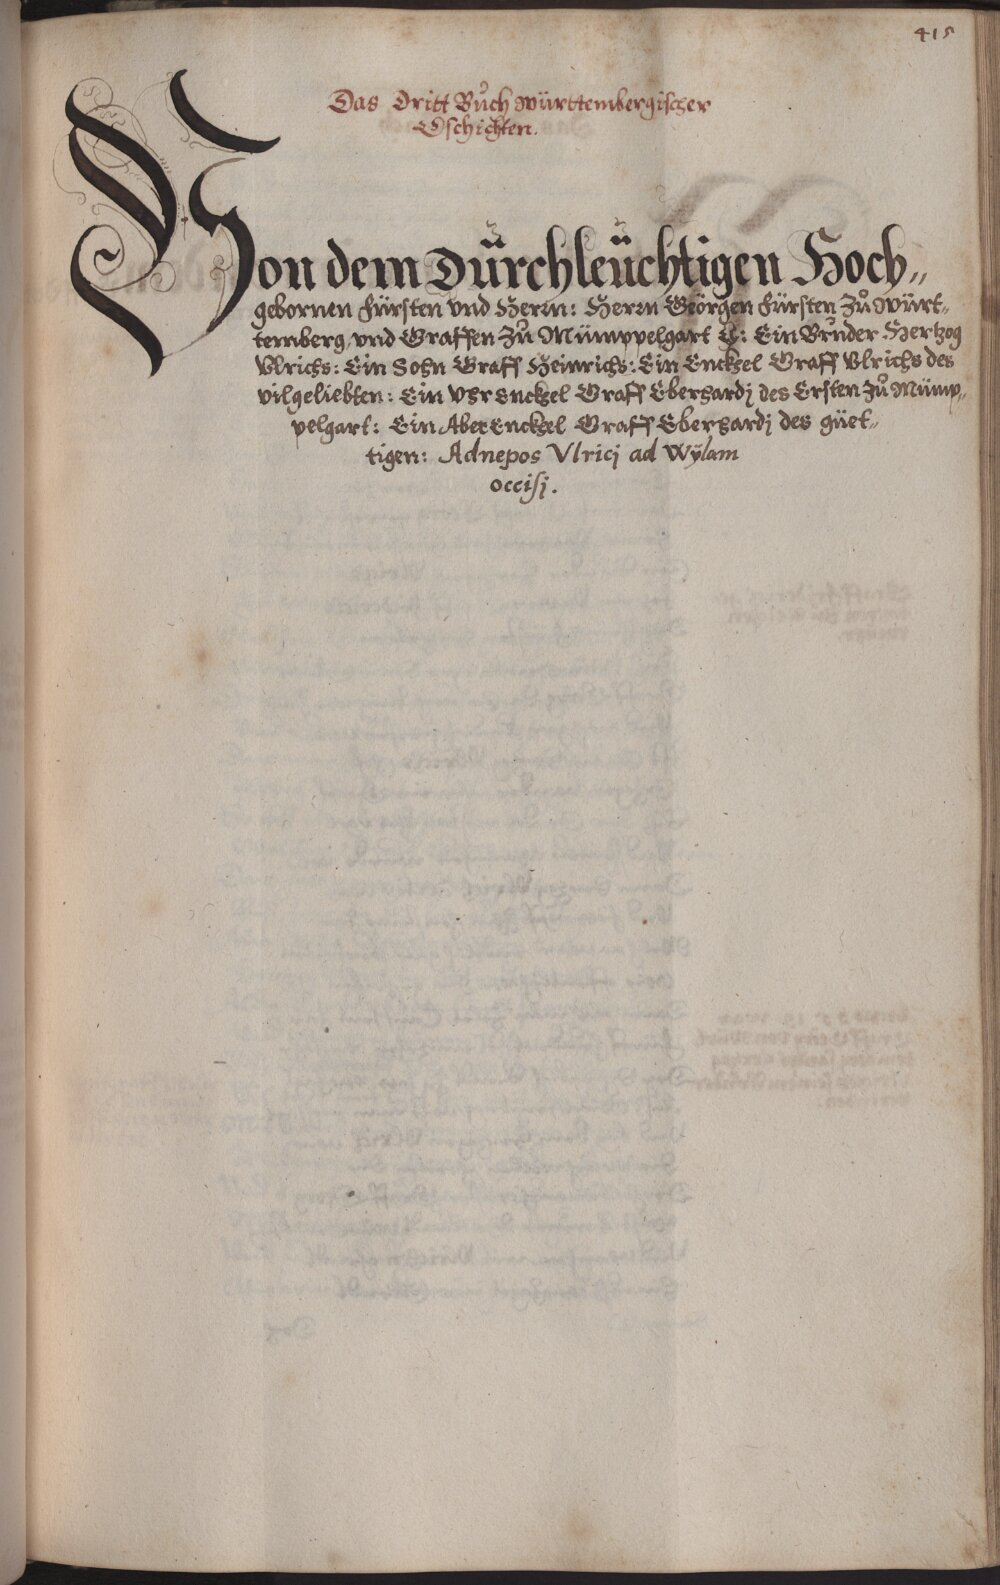 415
Das dritt Buͦch württembergischer
Gschichten.
Von dem Dürchleüchtigen Hoch„
gebornen fürsten vnd Herrn: Herrn Geörgen fürsten zuͦ württ„
temberg, vnd Graffen zuͦ Mümppelgart ꝛc: Ein Bruͦder Hertzog
Vlrichs: Ein Sohn Graff Heinrichs: Ein Enckhel Graff Vlrichs des
vilgeliebten: Ein Vhr Enckhel Graff Eberhardj des Ersten zuͦ Mümp„
pelgart: Ein Aber Enckhel Graff Eberhardj des güet„
tigen: Adnepos Vlricj ad Wÿlam
occisj.